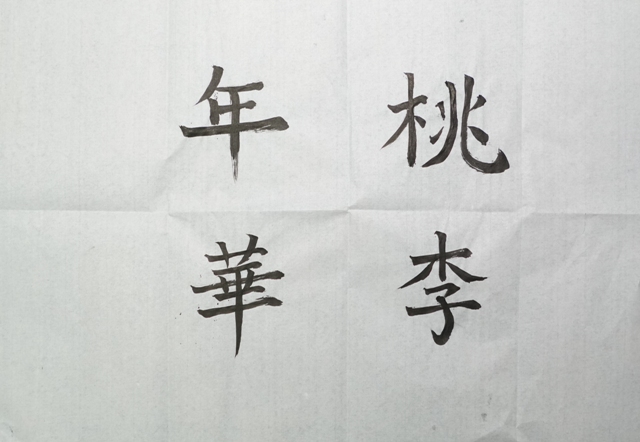 桃李
年華